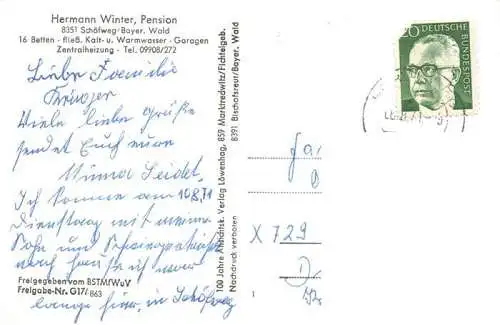 Hermann Winter, Pension
8351 Schöfweg/Bayer. Wald
16 Betten - fließ. Kalt- u. Warmwasser - Garagen
Zentralheizung - Tel. 09908/272
Liebe Familie
Krüger
Viele liebe Grüße
sendet Euch
Minna Seidel,
Ich komme am 10.8.71
Dienstag mit meinem
Sohn und
nach Hause ich war
lange hier, in Schöfweg
Freigegeben vom BSTMfWuV
Freigabe-Nr. G17/ 863
100 Jahre Ansichtsk. Verlag Löwenhag, 859 Marktredwitz/Fichtelgeb.
Nachdruck verboten 8391 Bischofsreut/Bayer. Wald
20 DEUTSCHE BUNDESPOST
Fa
X 729
D
1